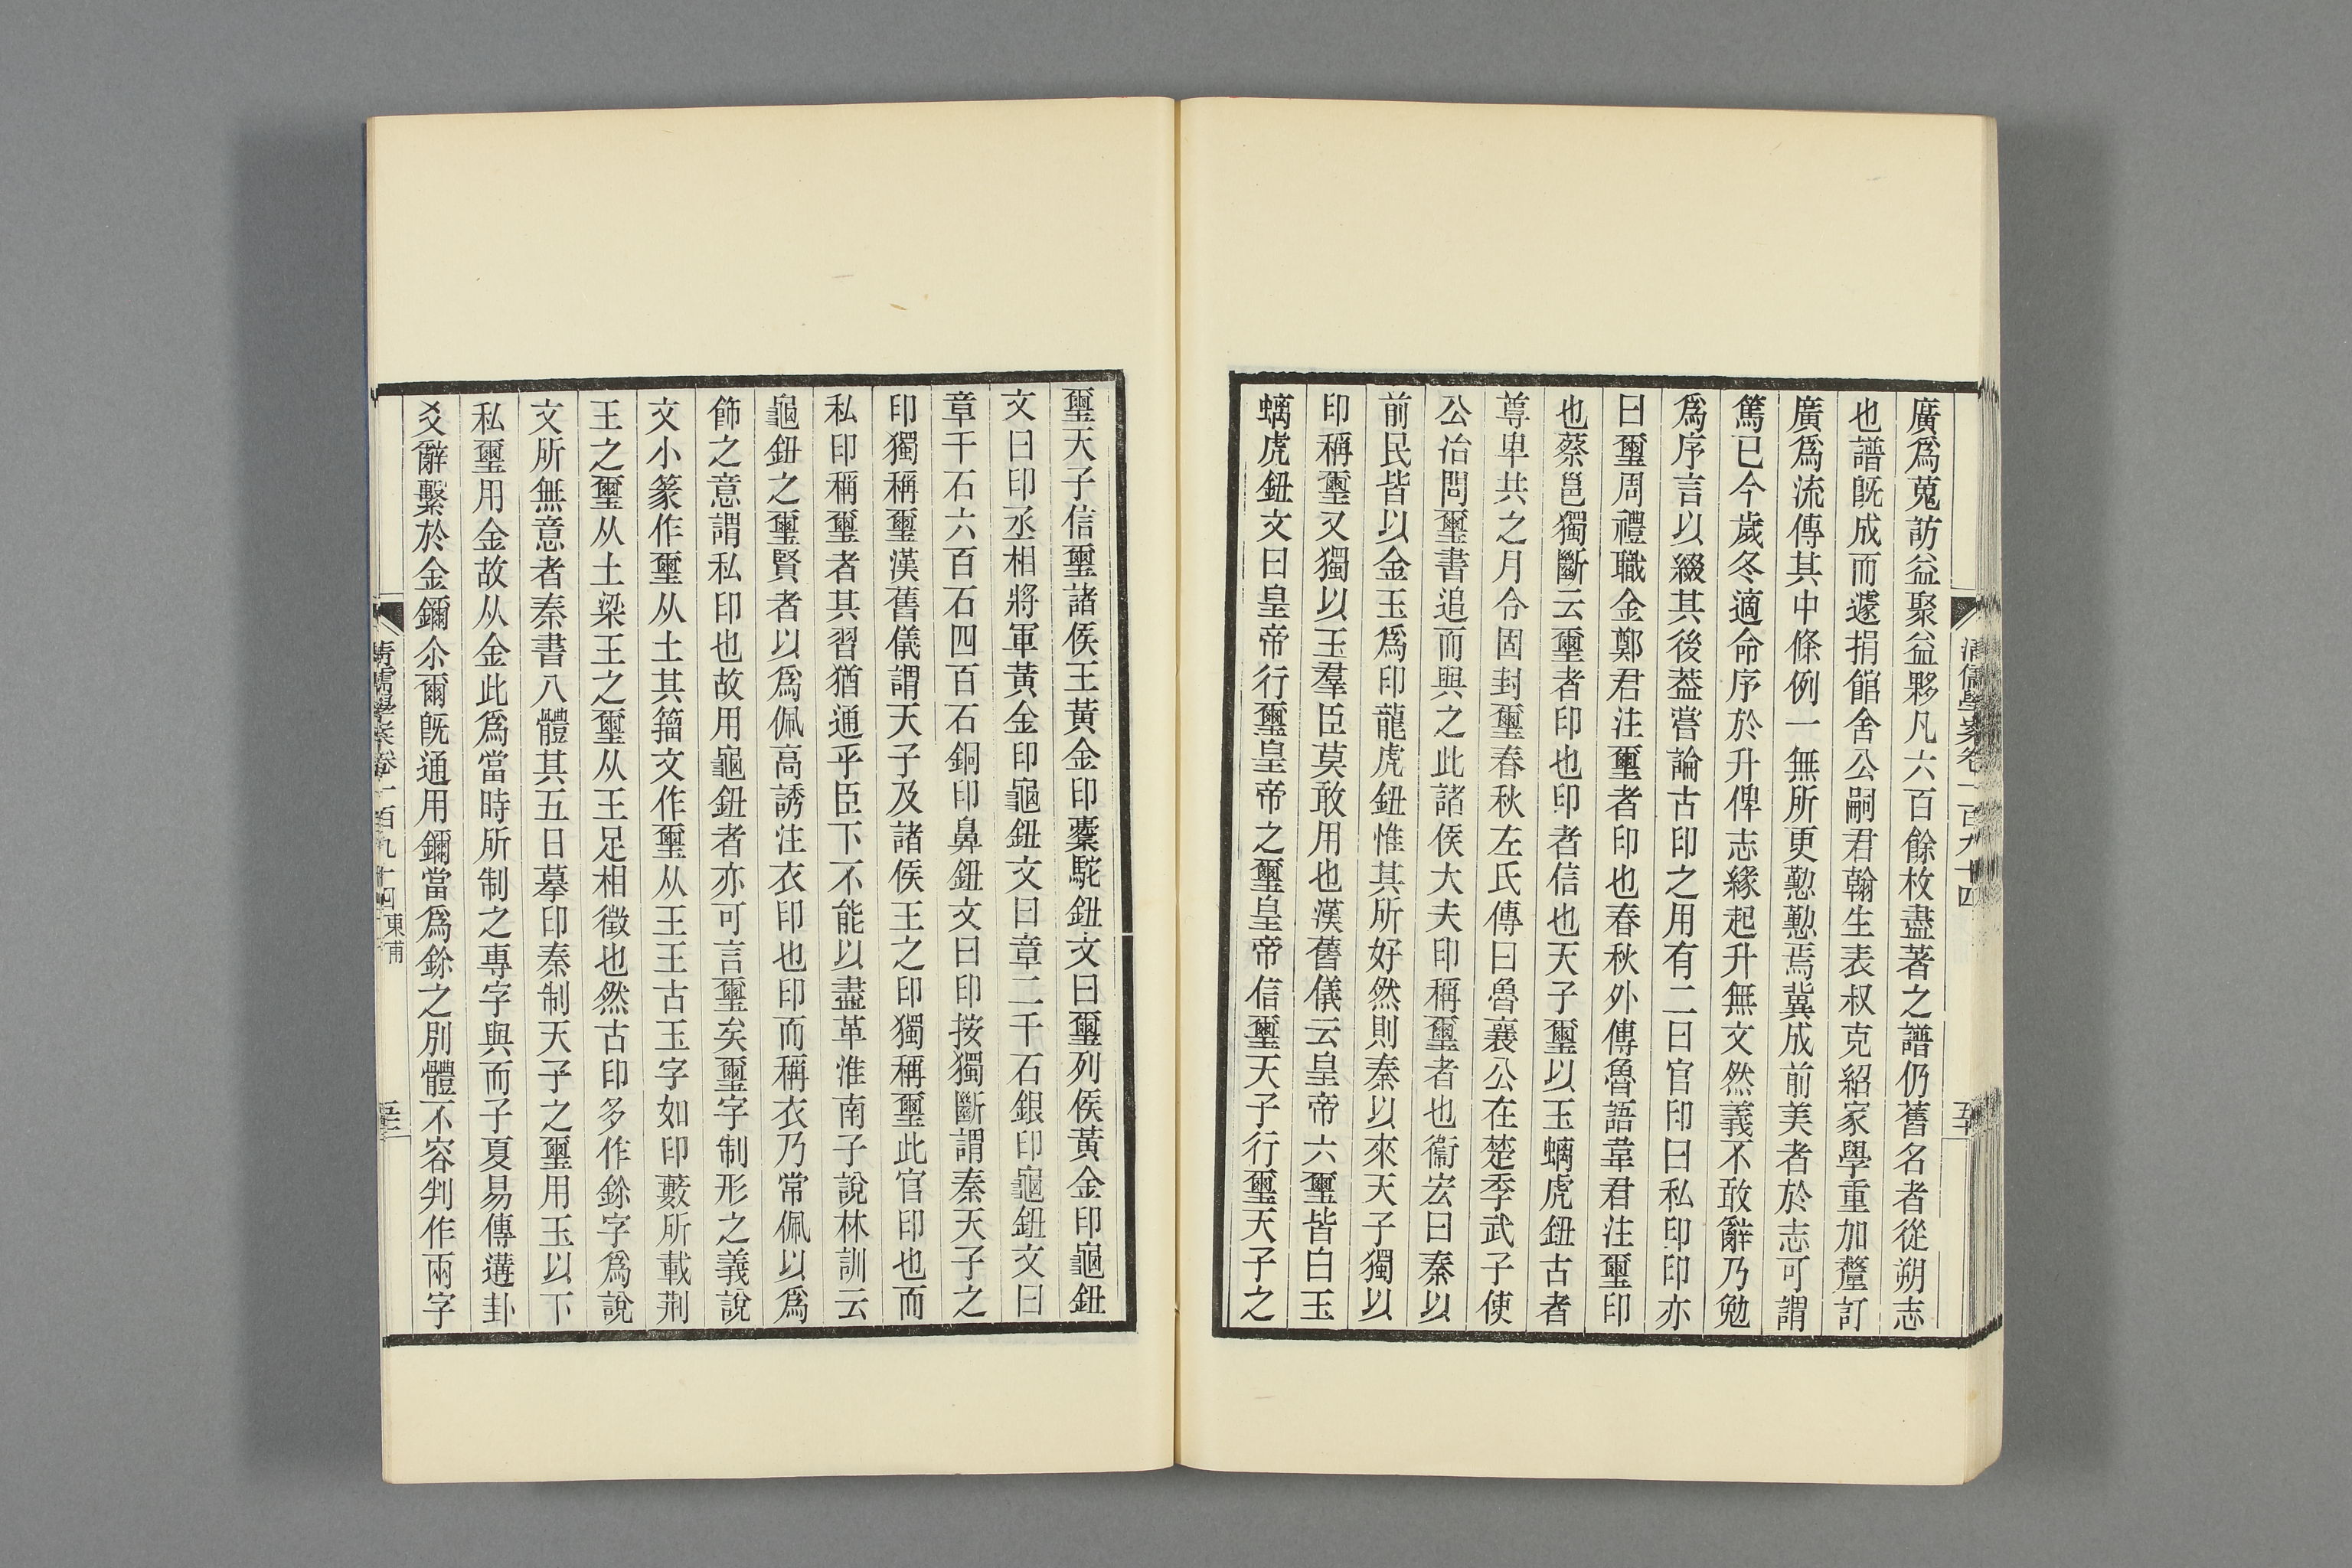 廣爲蒐訪益聚益夥凡六百餘枚盡著之譜仍舊名者從朔志
也譜旣成而遽捐館舍公嗣君翰生表叔克紹家學重加釐訂
廣爲流傳其中條例一無所更懃懃焉冀成前美者於志可謂
篤已今歲冬適命序於升俾志緣起升無文然義不敢辭乃勉
爲序言以綴其後葢嘗論古印之用有二曰官印曰私印印亦
曰璽周禮職金鄭君注璽者印也春秋外傳魯語韋君注璽印
也蔡邕獨斷云璽者印也印者信也天子璽以玉螭虎鈕古者
尊卑共之月令固封璽春秋左氏傳曰魯襄公在楚季武子使
公冶問璽書追而與之此諸侯大夫印稱璽者也衞宏曰秦以
前民皆以金玉爲印龍虎鈕惟其所好然則秦以來天子獨以
印稱璽又獨以玉羣臣莫敢用也漢舊儀云皇帝六璽皆白玉
螭虎鈕文曰皇帝行璽皇帝之璽皇帝信璽天子行璽天子之
璽天子信璽諸侯王黃金印橐駝鈕文曰璽列侯黃金印龜鈕
文曰印丞相將軍黃金印龜鈕文曰章二千石銀印龜鈕文曰
章千石六百石四百石銅印鼻鈕文曰印按獨斷謂秦天子之
印獨稱璽漢舊儀謂天子及諸侯王之印獨稱璽此官印也而
私印稱璽者其習猶通乎臣下不能以盡革淮南子說林訓云
龜鈕之璽賢者以爲佩高誘注衣印也印而稱衣乃常佩以爲
飾之意謂私印也故用龜鈕者亦可言璽矣璽字制形之義說
文小篆作璽从土其籀文作璽从王王古玉字如印藪所載荆
王之璽从土梁王之璽从王足相徵也然古印多作鉩字爲說
文所無意者秦書八體其五曰摹印秦制天子之璽用玉以下
私璽用金故从金此爲當時所制之專字與而子夏易傳遘卦
爻辭繫於金鑈尒爾旣通用鑈當爲鉩之別體不容判作兩字
清儒學案卷一百九十四
東甫